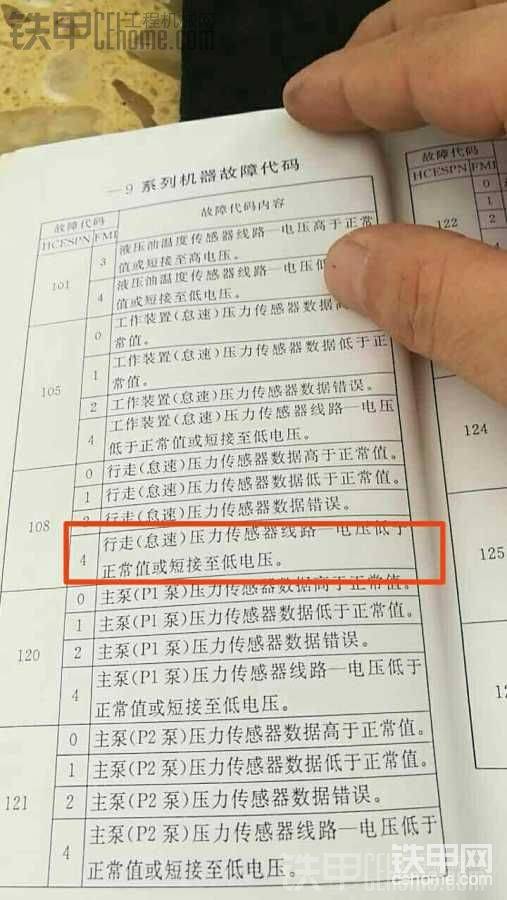 铁甲工程机械网
cehome.com
—9系列机器故障代码
故障代码
故障代码内容
HCESPN
FMI
101
3
液压油温度传感器线路—电压高于正常
值或短接至高电压。
4
液压油温度传感器线路—电压低
值或短接至低电压。
105
0
工作装置(怠速)压力传感器数据高
常值。
1
工作装置(怠速)压力传感器数据低于正
常值。
2
工作装置(怠速)压力传感器数据错误。
4
工作装置(怠速)压力传感器线路—电压
低于正常值或短接至低电压。
108
0
行走(怠速)压力传感器数据高于正常值。
1
行走(怠速)压力传感器数据低于正常值。
行走(怠速)压力传感器数据错误。
4
行走(怠速)压力传感器线路—电压低于
正常值或短接至低电压。
120
0
主泵(P1泵)压力传感器数据高于正常值。
1
主泵(P1泵)压力传感器数据低于正常值。
2
主泵(P1泵)压力传感器数据错误。
4
主泵(P1泵)压力传感器线路—电压低于
正常值或短接至低电压。
121
0
主泵(P2泵)压力传感器数据高于正常值。
1
主泵(P2泵)压力传感器数据低于正常值。
2
主泵(P2泵)压力传感器数据错误。
4
主泵(P2泵)压力传感器线路—电压低于
正常值或短接至低电压。
故障代码
HCESPN
FMI
122
0
1
2
124
125
铁甲网
cehome.com